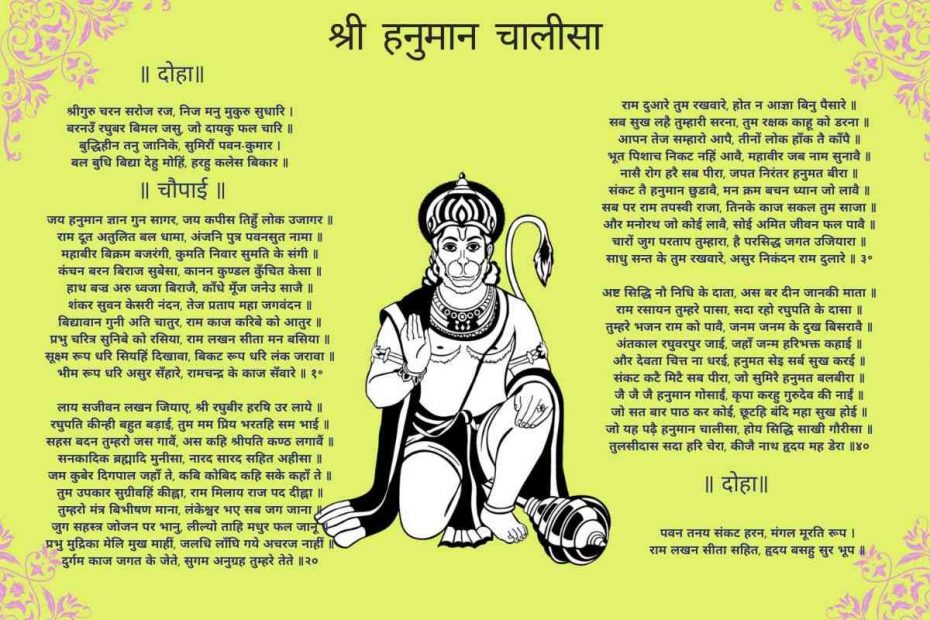 श्री हनुमान चालीसा
॥ दोहा॥
श्रीगुरु चरन सरोज रज, निज मनु मुकुरु सुधारि ।
बरनउँ रघुबर बिमल जसु, जो दायकु फल चारि ॥
बुद्धिहीन तनु जानिके, सुमिरौं पवन-कुमार ।
बल बुधि बिद्या देहु मोहिं, हरहु कलेस बिकार ॥
॥ चौपाई ॥
जय हनुमान ज्ञान गुन सागर, जय कपीस तिहुँ लोक उजागर ॥
राम दूत अतुलित बल धामा, अंजनि पुत्र पवनसुत नामा ॥
महाबीर बिक्रम बजरंगी, कुमति निवार सुमति के संगी ॥
कंचन बरन बिराज सुबेसा, कानन कुण्डल कुँचित केसा ॥
हाथ बज्र अरु ध्वजा बिराजै, काँधे मूँज जनेउ साजै ॥
शंकर सुवन केसरी नंदन, तेज प्रताप महा जगवंदन ॥
बिद्यावान गुनी अति चातुर, राम काज करिबे को आतुर ॥
प्रभु चरित्र सुनिबे को रसिया, राम लखन सीता मन बसिया ॥
सूक्ष्म रूप धरि सियहिं दिखावा, बिकट रूप धरि लंक जरावा ॥
भीम रूप धरि असुर सँहारे, रामचन्द्र के काज सँवारे ॥ १०
लाय सजीवन लखन जियाए, श्री रघुबीर हरषि उर लाये ॥
रघुपति कीन्ही बहुत बड़ाई, तुम मम प्रिय भरतहि सम भाई ॥
सहस बदन तुम्हरो जस गावैं, अस कहि श्रीपति कण्ठ लगावैं ॥
सनकादिक ब्रह्मादि मुनीसा, नारद सारद सहित अहीसा ॥
जम कुबेर दिगपाल जहाँ ते, कबि कोबिद कहि सके कहाँ ते ॥
तुम उपकार सुग्रीवहिं कीह्ना, राम मिलाय राज पद दीह्ना ॥
तुम्हरो मंत्र बिभीषण माना, लंकेश्वर भए सब जग जाना ॥
जुग सहस्त्र जोजन पर भानु, लील्यो ताहि मधुर फल जानू ॥
प्रभु मुद्रिका मेलि मुख माहीं, जलधि लाँघि गये अचरज नाहीं ॥
दुर्गम काज जगत के जेते, सुगम अनुग्रह तुम्हरे तेते ॥२०
राम दुआरे तुम रखवारे, होत न आज्ञा बिनु पैसारे ॥
सब सुख लहै तुम्हारी सरना, तुम रक्षक काहू को डरना ॥
आपन तेज सम्हारो आपै, तीनों लोक हाँक तै काँपै ॥
भूत पिशाच निकट नहिं आवै, महावीर जब नाम सुनावै ॥
नासै रोग हरै सब पीरा, जपत निरंतर हनुमत बीरा ॥
संकट तै हनुमान छुडावै, मन क्रम बचन ध्यान जो लावै ॥
सब पर राम तपस्वी राजा, तिनके काज सकल तुम साजा ॥
और मनोरथ जो कोई लावै, सोई अमित जीवन फल पावै ॥
चारों जुग परताप तुम्हारा, है परसिद्ध जगत उजियारा ॥
साधु सन्त के तुम रखवारे, असुर निकंदन राम दुलारे ॥ ३०
अष्ट सिद्धि नौ निधि के दाता, अस बर दीन जानकी माता ॥
राम रसायन तुम्हरे पासा, सदा रहो रघुपति के दासा ॥
तुम्हरे भजन राम को पावै, जनम जनम के दुख बिसरावै ॥
अंतकाल रघुवरपुर जाई, जहाँ जन्म हरिभक्त कहाई ॥
और देवता चित्त ना धरई, हनुमत सेइ सर्ब सुख करई ॥
संकट कटै मिटै सब पीरा, जो सुमिरै हनुमत बलबीरा ॥
जै जै जै हनुमान गोसाईं, कृपा करहु गुरुदेव की नाईं ॥
जो सत बार पाठ कर कोई, छूटहि बंदि महा सुख होई ॥
जो यह पढ़ै हनुमान चालीसा, होय सिद्धि साखी गौरीसा ॥
तुलसीदास सदा हरि चेरा, कीजै नाथ हृदय मह डेरा ॥४०
॥ दोहा॥
पवन तनय संकट हरन, मंगल मूरति रूप ।
राम लखन सीता सहित, हृदय बसहु सुर भूप ॥